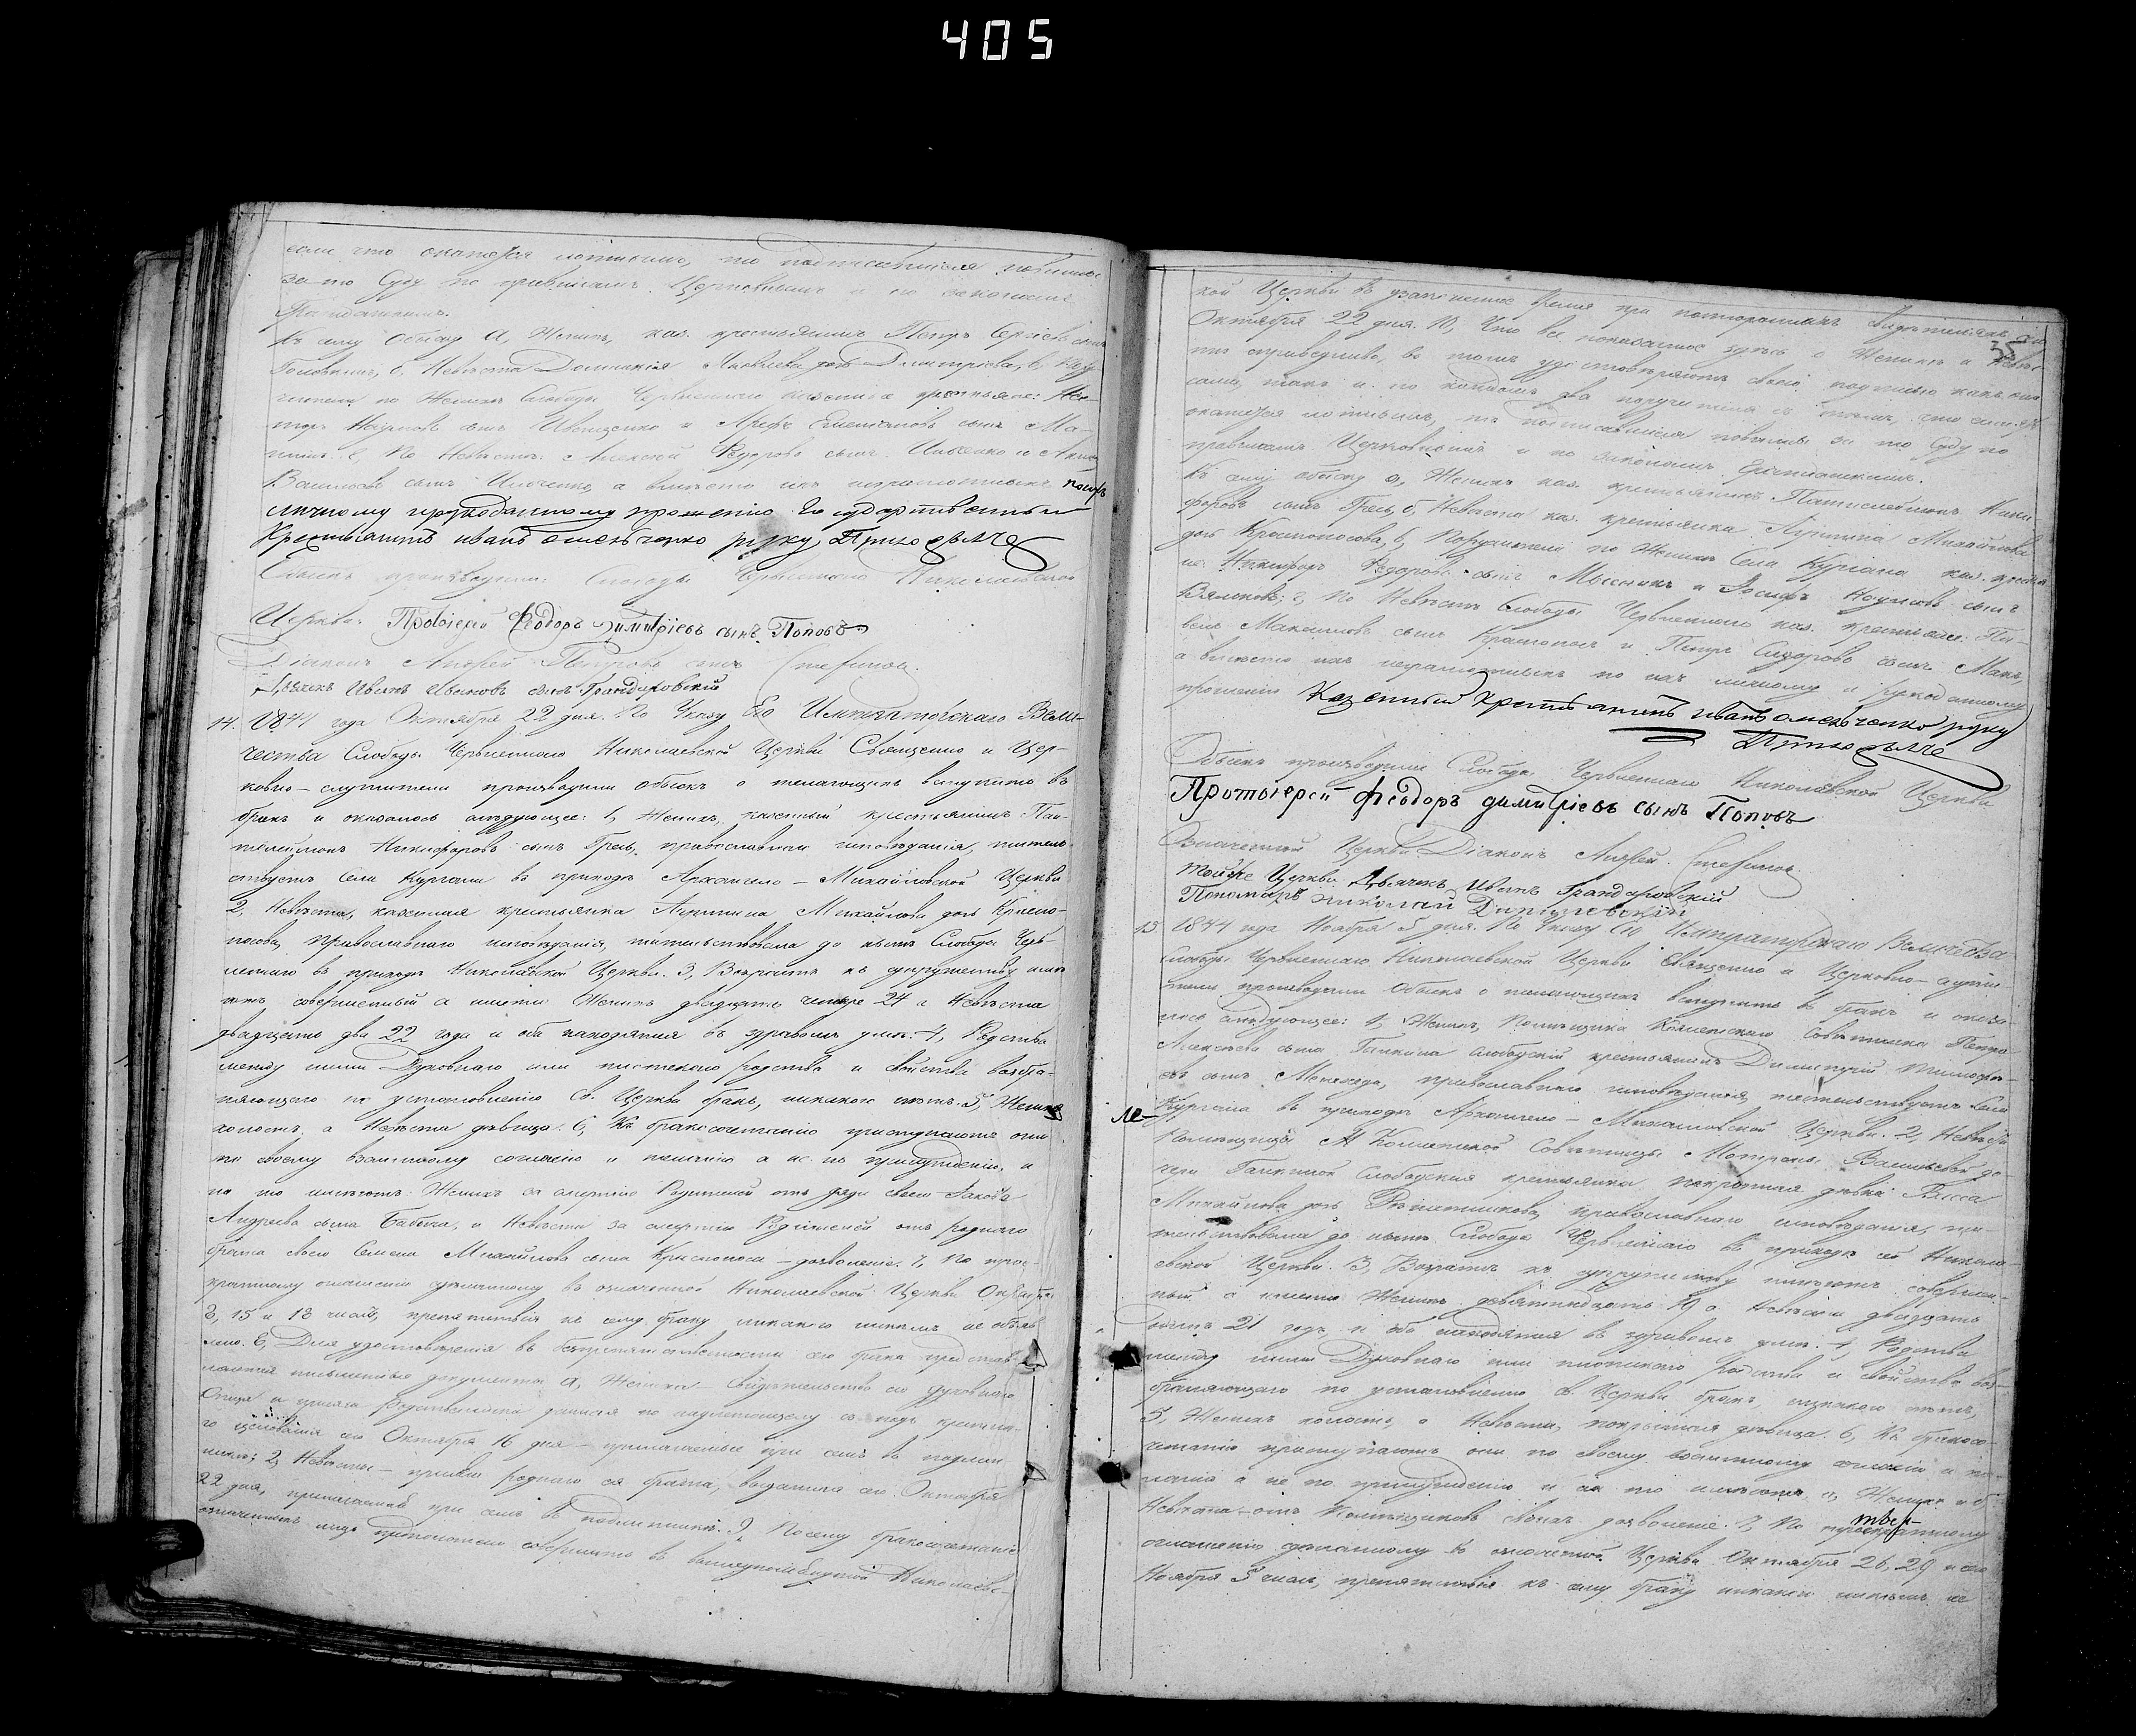 405
если что окажется ложнымъ, то подписавшіеся повинны
за то суду по правиламъ Церковнымъ и по законамъ
Гражданскимъ.
Къ сему обыску а, Женихъ, каз. крестьянинъ Петръ Сергіевъ сынъ
Головкинъ, б, Невѣста Домникія Яковлева дочь Димитріева, в, Пору-
чители по Женихѣ Слободы Червленнаго казенные крестьяне: Не-
сторъ Наумовъ сынъ Иващенко и Арефа Емельяновъ сынъ Ма-
г, По Невѣстѣ: Алексей Федоровъ сынъ Ильченко и
Васильевъ сынъ Ильченко, а вмѣсто ихъ неграмотныхъ по ихъ
личному и рукоданному прошению Государственный
Крестьянинъ иванъ емельченко руку Приложилъ
Обыскъ производили: Слободы Червленнаго Николаевской
Церкви: Протоіерей Феодоръ Димитріевъ сынъ Поповъ
Діаконъ Андрей Петровъ сынъ Стефановъ.
Дьячекъ Иванъ Ивановъ сынъ Грандаровскій
14. 1844 года Октября 22 дня. По Указу Его Императорскаго Вели-
чества Слободы Червленнаго Николаевской Церкви Священно и Цер-
ковно-служители производили обыскъ о желающихъ вступить въ
бракъ и оказалось слѣдующее: 1, Женихъ, казенный крестьянинъ Пан-
телеймонъ Никифоровъ сынъ Гресь, православнаго исповѣданія, житель-
ствуетъ Села Кургана въ приходѣ Архангело-Михайловской Церкви
2, Невѣста, казенная крестьянка Акулина Михайлова дочь Красно-
носова, православнаго исповѣданія, жительствовала до нынѣ Слободы Черв-
леннаго въ приходѣ Николаевской Церкви. 3, Возрастъ къ супружеству имѣ-
ютъ совершенный а именно Женихъ двадцать четыре 24 а Невѣста
двадцать два 22 года и оба находятся въ здравомъ умѣ. 4, Родства
между ними Духовнаго или плотскаго родства и свойства возбра-
няющаго по установленію Св. Церкви бракъ, никакого нѣтъ. 5, Женихъ
холостъ, а Невѣста дѣвица. 6, Къ бракосочетанію приступаютъ они
по своему взаимному согласію и желанію а не по принужденію, и
на то имѣютъ: Женихъ за смертію Родителей отъ дяди своего Іакова
Андреева сына Бабича, а Невѣста за смертію Родителей отъ роднаго
брата своего Семена Михайлова сына Красноноса - дозволеніе. 7, По трое-
кратному оглашенію сдѣланному въ означенной Николаевской Церкви Октября
8, 15 и 18 чиселъ, препятствія къ сему браку никакого никѣмъ не объяв-
лено. 8, Для удостовѣренія въ безпрепятственности сего брака представ-
ляются письменные документы а, Жениха - Свидѣтельство его Духовнаго
Отца и
го цѣлованія его Октября 16 дня - прилагаемые при семъ въ подлин-
никѣ; 2, Невѣсты - роднаго ея брата, выданная его Октября
22 дня, прилагаемая при семъ въ подлинникѣ. 9, Посему бракосочетаніе
означенныхъ лицъ предположено совершить въ вышеупомянутой Николаевс-
35
кой Церкви въ узаконенное время при постороннихъ свидѣтеляхъ
Октября 22 дня. 10, Что все показанное здѣсь о Женихѣ и Невѣс-
тѣ справедливо, въ томъ удостовѣряютъ своею подписью какъ они
сами, такъ и по каждомъ два поручителя съ тѣмъ, что если
окажется ложнымъ, то подписавшіеся повинны за то Суду по
правиламъ Церковнымъ и по законамъ Гражданскимъ.
Къ сему обыску а, Женихъ каз. крестьянинъ Пантелеймонъ Ники-
форовъ сынъ Гресь, б, Невѣста каз. крестьянка Акулина Михайлова
дочь Красноносова, в, Поручители по Женихѣ Села Кургана каз. крестья-
не Никифоръ Федоровъ сынъ Мысникъ и Іосифъ Наумовъ сынъ
г, По Невѣстѣ Слободы Червленнаго каз. крестьяне: Па-
велъ Максимовъ сынъ и Петръ Сидоровъ сынъ
а вмѣсто ихъ неграмотныхъ по ихъ личному и рукоданному
прошенію Казенный крестьянинъ иванъ омельченко руку
Приложилъ
Обыскъ производили Слободы Червленнаго Николаевской Церкви
Протоіерей Феодоръ димитріевъ сынъ Поповъ
Означенной Церкви Діаконъ Андрей Стефановъ.
Тойже Церкви Дьячекъ Иванъ Грандаровскій
Пономарь николай
15 1844 года Ноября 5 дня. По Указу Его Императорскаго Величества
Слободы Червленнаго Николаевской Церкви Священно и Церковно-служи-
тели производили обыскъ о желающихъ вступить въ бракъ и оказа-
лось слѣдующее: 1, Женихъ, Помѣщика Коллежскаго Совѣтника Петра
Алексѣева сына Слободскій крестьянинъ Димитрій Тимофе-
евъ сынъ православнаго исповѣданія, жительствуетъ Села
Кургана въ приходѣ Архангело-Михайловской Церкви. 2, Невѣста
Помѣщицы Коллежской Совѣтницы Матрены Васильевой до-
чери Слободская крестьянка дѣвка
Михайлова дочь православнаго исповѣданія, жи-
тельствовала до нынѣ Слободы Червленнаго въ приходѣ сей Никола-
евской Церкви. 3, Возрастъ къ супружеству имѣютъ совершен-
ный а именно Женихъ девятнадцать 19 а Невѣста двадцать
одинъ 21 годъ, и оба находятся въ здравомъ умѣ. 4, Родства
между ними Духовнаго или плотскаго родства и свойства воз-
браняющаго по установленію св. Церкви бракъ, никакого нѣтъ,
5, Женихъ холостъ, а Невѣста, дѣвица. 6, Къ бракосо-
четанію приступаютъ они по своему взаимному согласію и же-
ланію а не по принужденію и на то имѣютъ а, Женихъ и б
Невѣста - отъ Помѣщиковъ своихъ дозволеніе. 7, По троекратному
оглашенію сдѣланному въ означенной Церкви Октября 26, 29 и
Ноября 5 чиселъ, препятствія къ сему браку никакого никѣмъ не